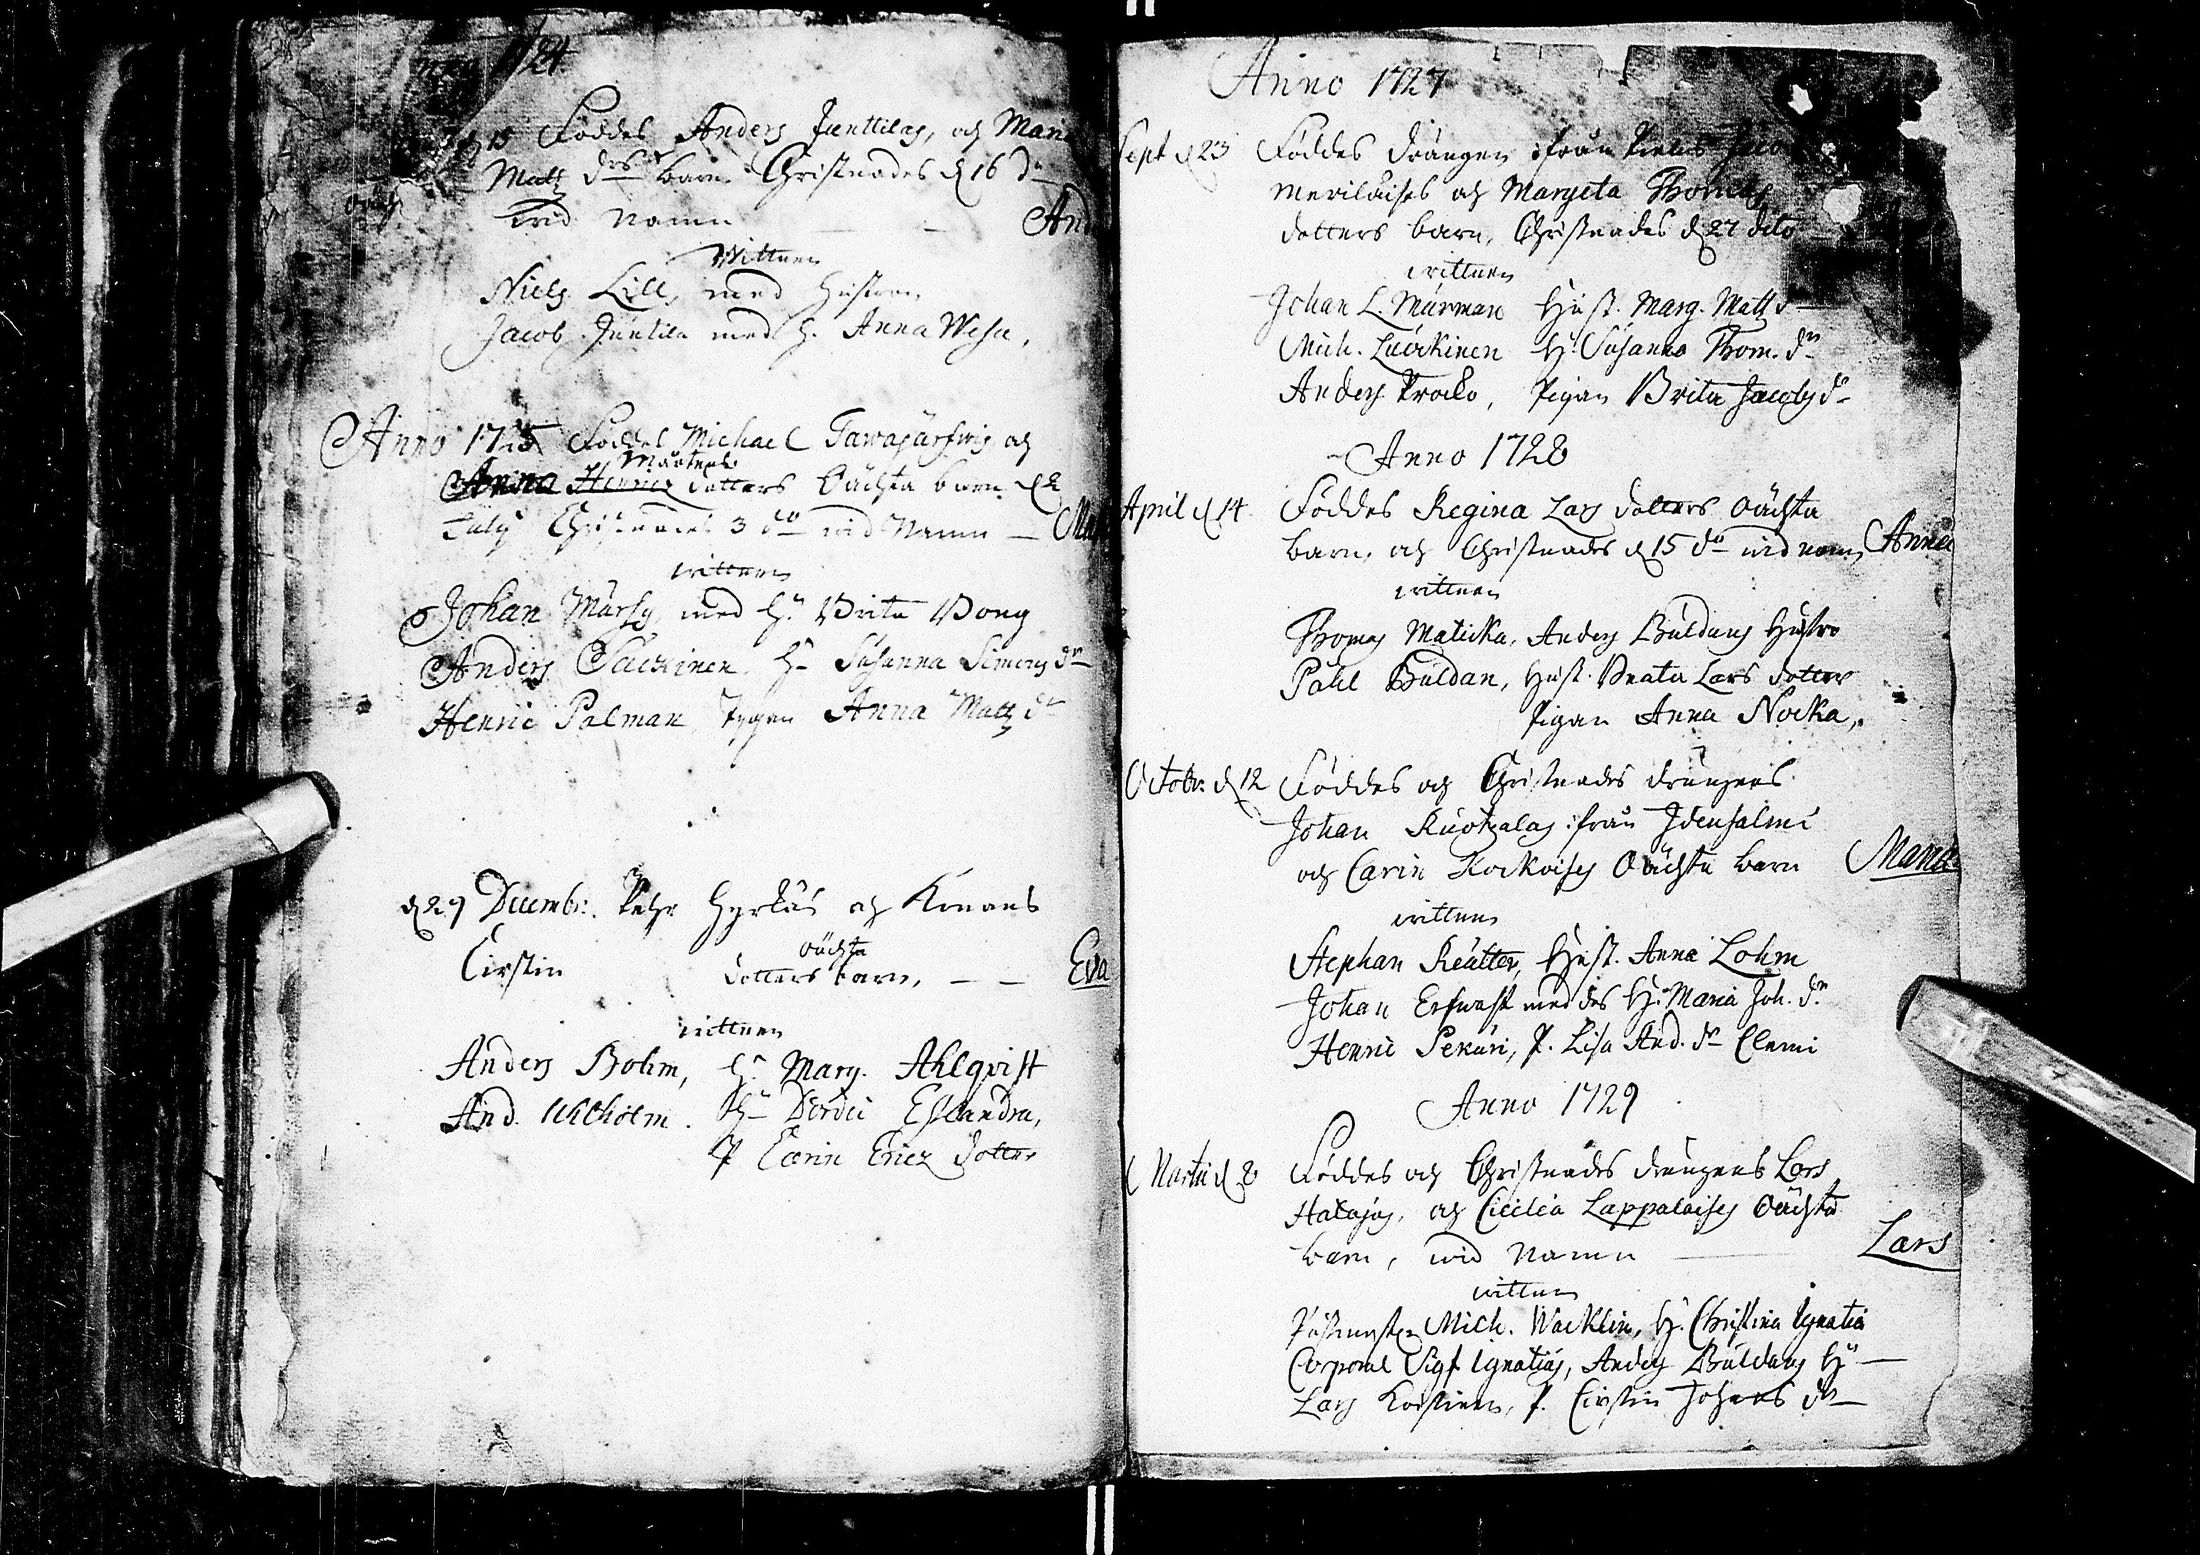 Anno 1724
d 15 Föddes Anders Junttilas, och Mari
Matz drs barn Christnades d 16 do
oächt
wid namn — — And
Wittnen
Niels Lill, med hustron
Jacob Juntila med h. Anna Wesa,
Anno 1725 Föddes Michael Tawajärfwis och
Mårtens
Anna Henrics dotters Oächta barn d 2
July Christnades 3 do wid Namn — Ma
wittnen
Johan Mursu, med hu Brita Bong
Anders hu Susanna Simons dr
Henric Palman, Pigan Anna Matz dr
d 29 Decembr. Pehr Hyrkäs och Konans
oächta
Cirstin dotters barn, — — Eva
wittnen
Anders Bohm, hu Marg. Ahlqvist
And. Ulholm. hu Dordi Eskandra,
P Carin Erics dotter
Anno 1727
Sept d 23 Föddes Drängen ifrån Jaco
Meriläises och Margeta Thomas
dotters barn, Christnades d 27 dito
wittnen
Johan L. Murman Hust. Marg. Matz d
Mich. Luockinen Hu Susanna Thom. dr
Anders Procko, Pigan Brita Jacobs dr
Anno 1728
April d 14 Föddes Regina Lars dotters oächta
barn, och Christnades d 15 do wid namn Anna
wittnen
Thomas Maticka, Anders Buldans Hustro
Pahl Buldan, Hust. Beata Lars dotter
Pigan Anna Nocka,
Octobr: d 12 Föddes och Christnades drängens
Johan Ruotzalas ifrån Idensalmi
och Carin Kockoises Oächta barn Maria
wittnen
Stephan Reutter, Hust. Anna Lohm
Johan Erfwast med des Hu Maria Joh. dr
Henric Pekuri, P. Lisa And. dr Clemi
Anno 1729
Martii d 8 Föddes och Christnades drängens Lars
Halajas, och Cicilia Lappalaises Oächta
barn, wid Namn — Lars
wittnen
Mich. Wacklin, H. Christina Ignatia
Corporal Sigf Ignatius, Anders Buldans Hu —
Lars Koistinen, P. Cirstin Johans dr —